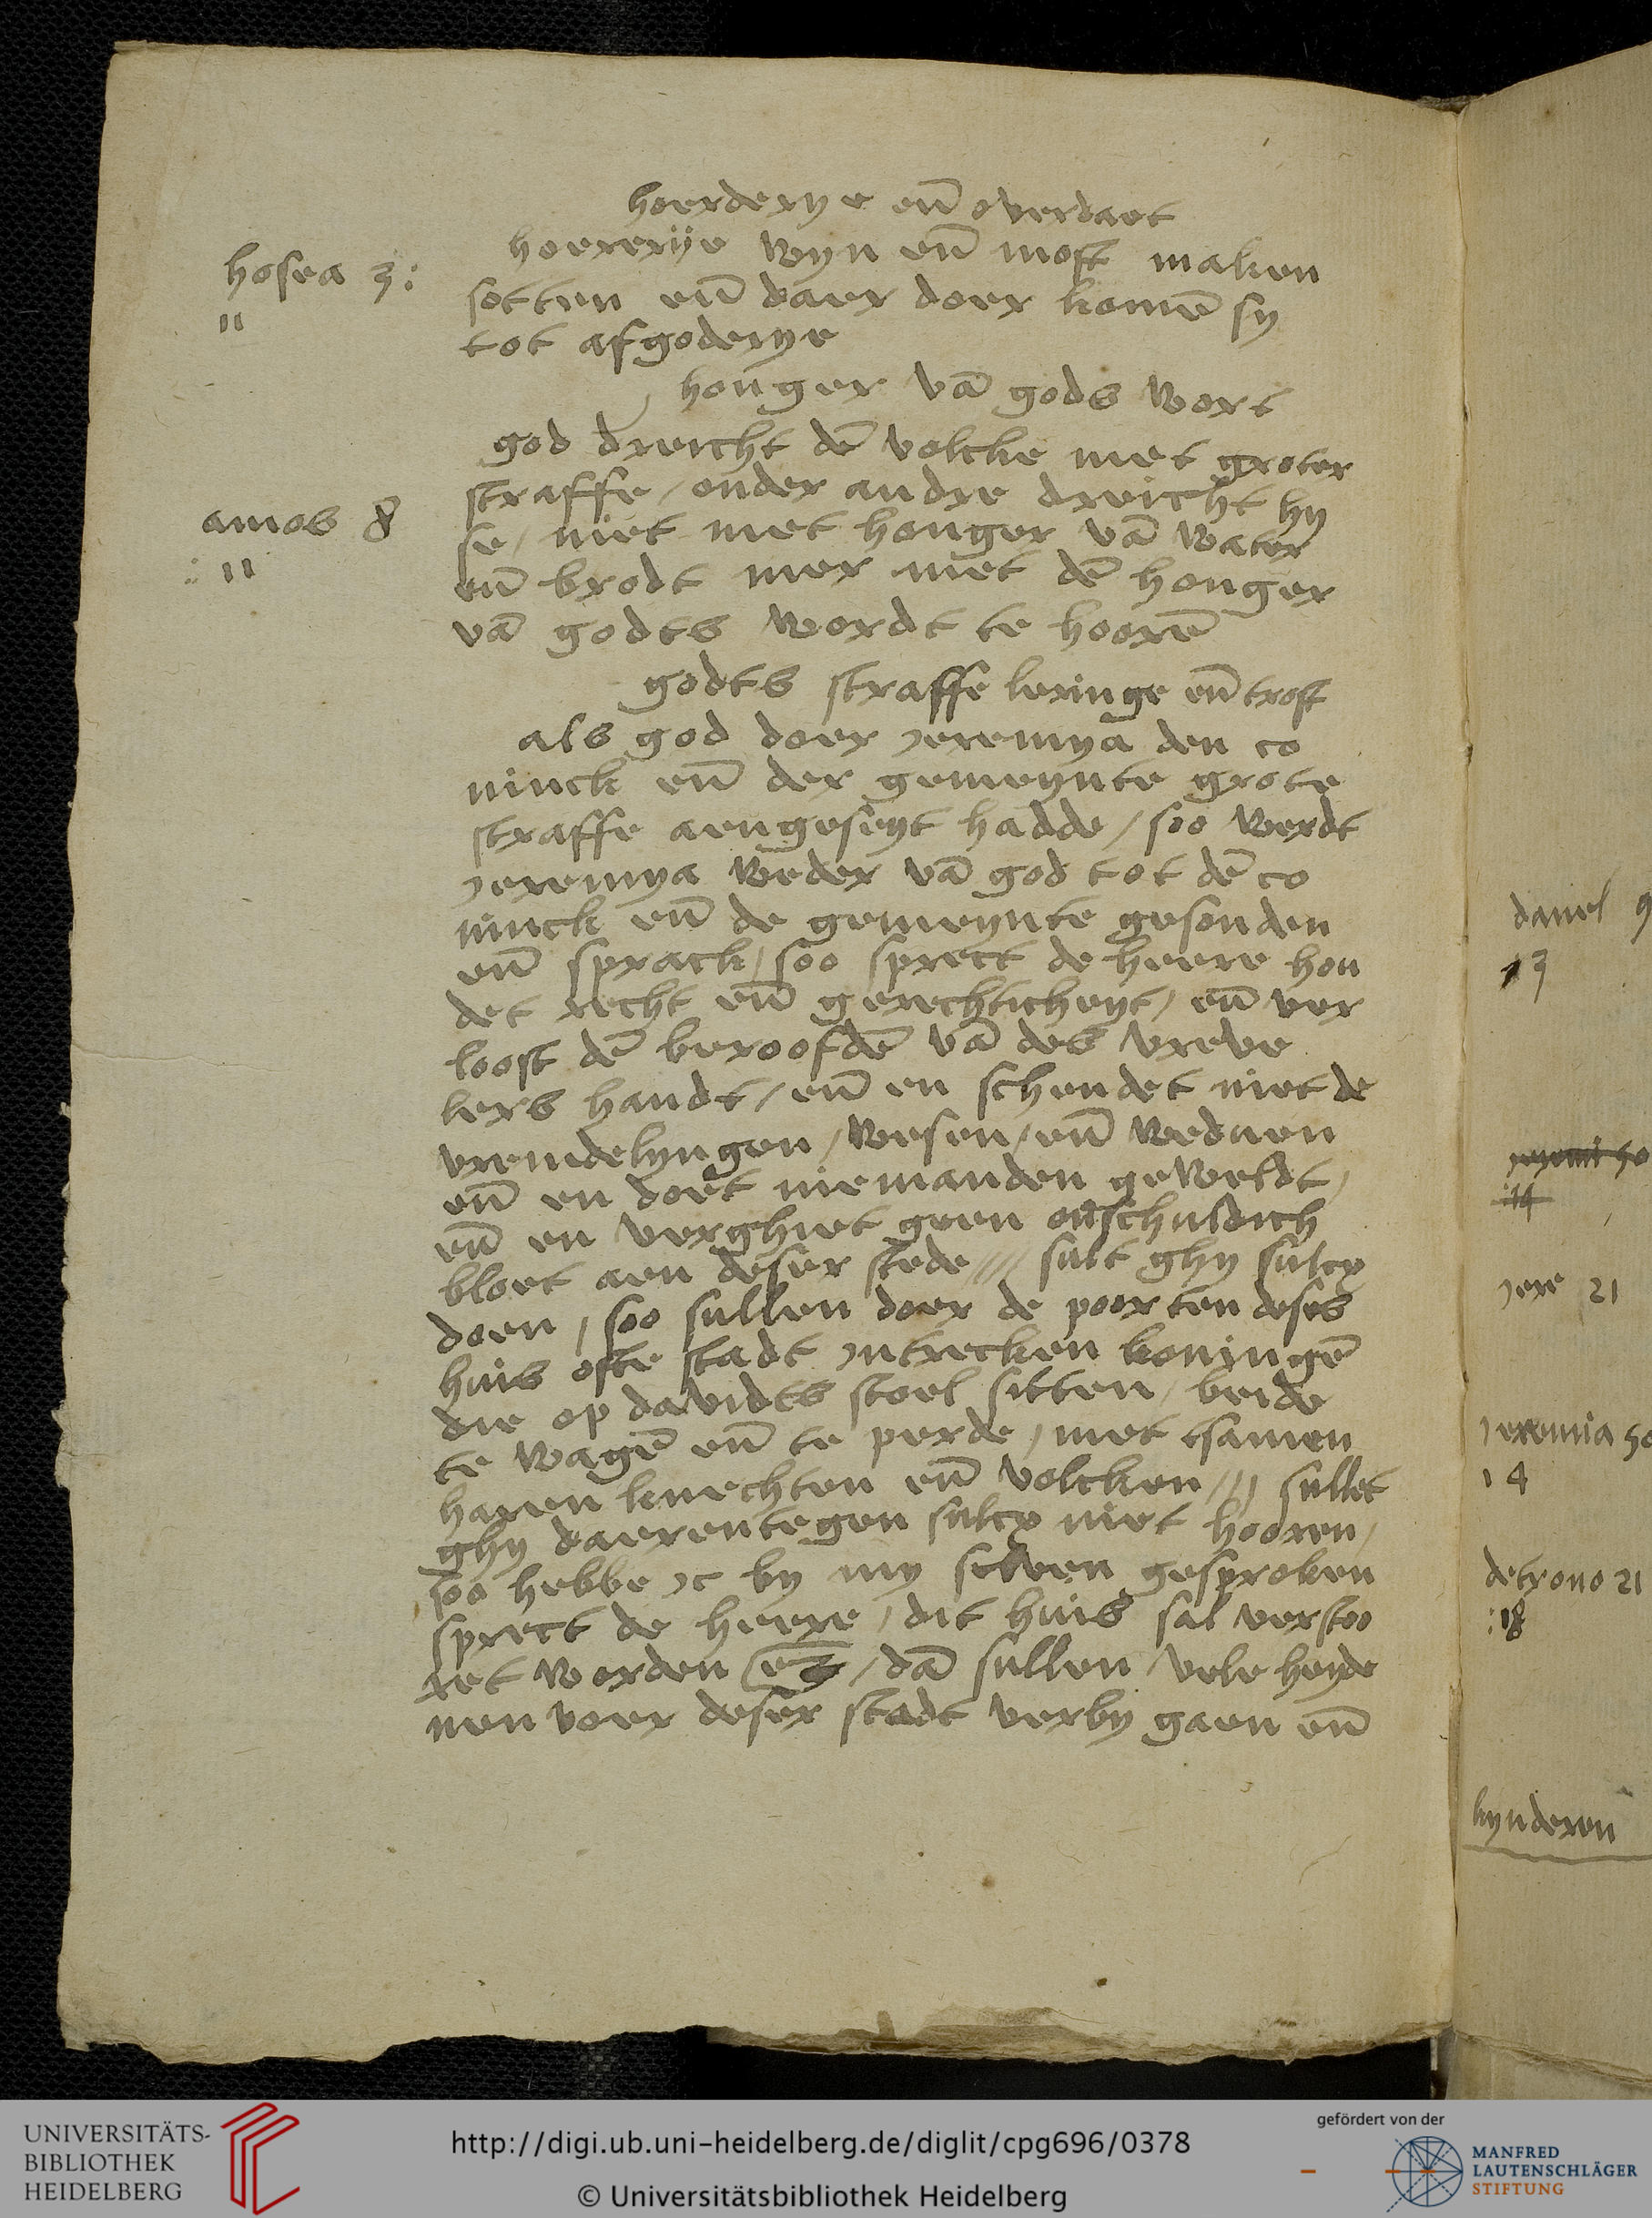 hoerderye eñ overdaet
hoererije wyn eñ most maken
hosea 3:
sotten eñ daer doer komē sy
11
tot afgoderye
honger vā gods wort
god dreicht dē volcke met groter
straffe / onder andre dreicht hy
amos 8
se / niet met honger vā water
: 11
eñ brodt mer met dē honger
vā godts wordt te hoorē
godts straffe leringe eñ trost
als god doer jeremyā den co
ninck eñ der gemeynte grote
straffe aengeseyt hadde / soo werdt
jeremya weder vā god tot dē co
ninck eñ de gemeynte gesonden
eñ sprack / soo sprect de heere hou
det recht eñ gerechticheyt / eñ ver
loost dē beroofdē vā des vreve
lers handt / eñ en schendet niet de
vremdelyngen / wesen / eñ weduen
eñ en doet niemanden geweldt /
eñ en verghiet geen onschuldich
bloet aen deser stede /// sult ghy sulcx
doen / soo sullen doer de poorten deses
huis ofte stadt intrecken koningē
die op davidts stoel sitten / beide
te wagē eñ te perde / met tsamen
haren knechten eñ volcken /// sullet
ghy daerentegen sulcx niet hooren /
soo hebbe ic by my selven gesproken
sprect de heere / dit huis sal verstoo
ret worden / dā sullen vele heyde
nen voer deser stadt verby gaen eñ
daniel 9
13
jere 21
jeremia 50
14
:18
kynderen
UNIVERSITÄTS-
BIBLIOTHEK
HEIDELBERG
http://digi.ub.uni-heidelberg.de/diglit/cpg696/0378
© Universitätsbibliothek Heidelberg
gefördert von der
MANFRED
LAUTENSCHLÄGER
STIFTUNG